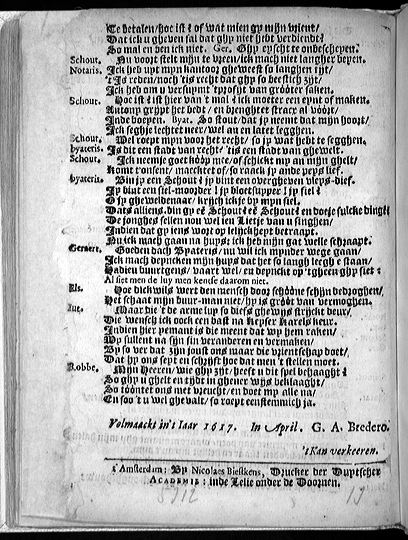 Te betalen/hoc ist? of wat mien gy mijn vrient/
Dat ick u gheven sal dat ghy niet hebt verdiendt?
So mal en ben ick niet. Ger. Ghy eyscht te onbeschepen.
Schout. Nu voort stelt mijn te vreen/ick mach niet langher beyen.
Notaris. Ick heb upt mijn kantoor gheweest so langhen tijt/
't Is reden/noch 'tis recht dat ghy so beestlich zijt/
Ick heb om u versuymt 'tprofijt van grooter saken.
Schout. Hoe ist? ist hier van 't mal? ick moeter een eynt of maken.
Antony grijpt het bedt/ en brenghtet stracx al vóórt/
Inde boepen. Byat. So stout/dat jy neemt dat mijn hoort/
Ick seghje lechtet neer/ wel au en latet legghen.
Schout. Wel roept mijn voor het recht/ so jy wat hebt te segghen.
byateris. Is dit een stadt van recht/ 'tis een stadt van ghewelt.
Schout. Ick neemje goet kóóp mee/of schickt my an mijn ghelt/
Komt romsent/ maecktet of/so raack jy ande peys lief.
byateris. Bin jy een Schout? jy bint een overgheven vleys-dief.
Jy bint een siel-moorder! jy bloetsupper! jy fiel?
O jy gheweldenaar/ krijch ickje by mijn siel.
Wats alliens/bin gy eē Schout? eē Schout? en doeje sulcke dingē?
De jonghes sellen nou wel ien Lietje van u singhen/
Indien dat gy iens wort op lelijckheyt betraapt.
Nu ick mach gaan na huys: ick heb mijn gat velle schraapt.
Geraert. Goeden dach Byateris/ nu wil ick mijnder wege gaan/
Ick mach bepneken mijn huys dat het so langh leegh e staan/
Hadieu buurtgens/ vaart wel/ en depnckt op 'tgheen ghy siet?
Al siet men de luy men kensse daarom niet.
Els. Hoe dickwils wert den mensch door schóóne schijn bedzoghen/
Het schaat mijn buur-man niet/hy is gróót van vermoghen.
Jut. Maar die 't de arme luy so diefs ghewijs strijckt deur/
Die wensch ick oock een bast na Keyser Karels keur.
Indien hier yemant is die meent dat wy hem raken/
Wy sullent na sijn sin veranderen en vermaken/
Wy so ver dat zijn joust ons maar die vrientschap doet/
Dat hy ons seyt en schrijft hoe dat men 't stellen moet.
Robbe. Mijn Heeren/ wie ghy zijt/ heeft u dit spel behaaght?
So ghy u ghelt en tijdt in ghener wijs beklaaght/
So tóóntet ons met vreucht/en doet my alle na/
En soo 't u wel ghevalt/ so roept eenstemmich ja.
Volmaackt in't Iaar 1617. In April. G. A. Bredero.
't Kan verkeeren.
t'Amsterdam: By Nicolaes Biestkens, Drucker der Duytscher
ACADEMIE: inde Lelie onder de Doornen.